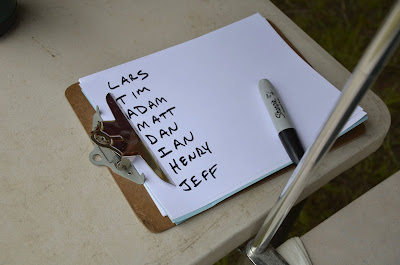 LARS
TIM
ADAM
MATT
DAN
IAN
HENRY
JEFF
Sharpie